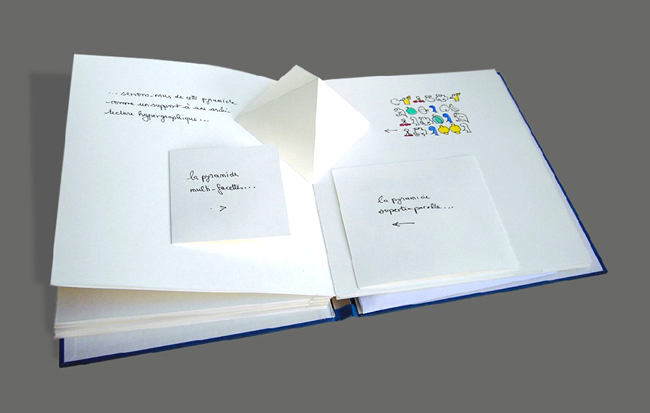 ... servons-nous de cette pyramide
comme un support à une archi-
tecture hypergraphique...
la pyramide
multi-facettes...
la pyramide